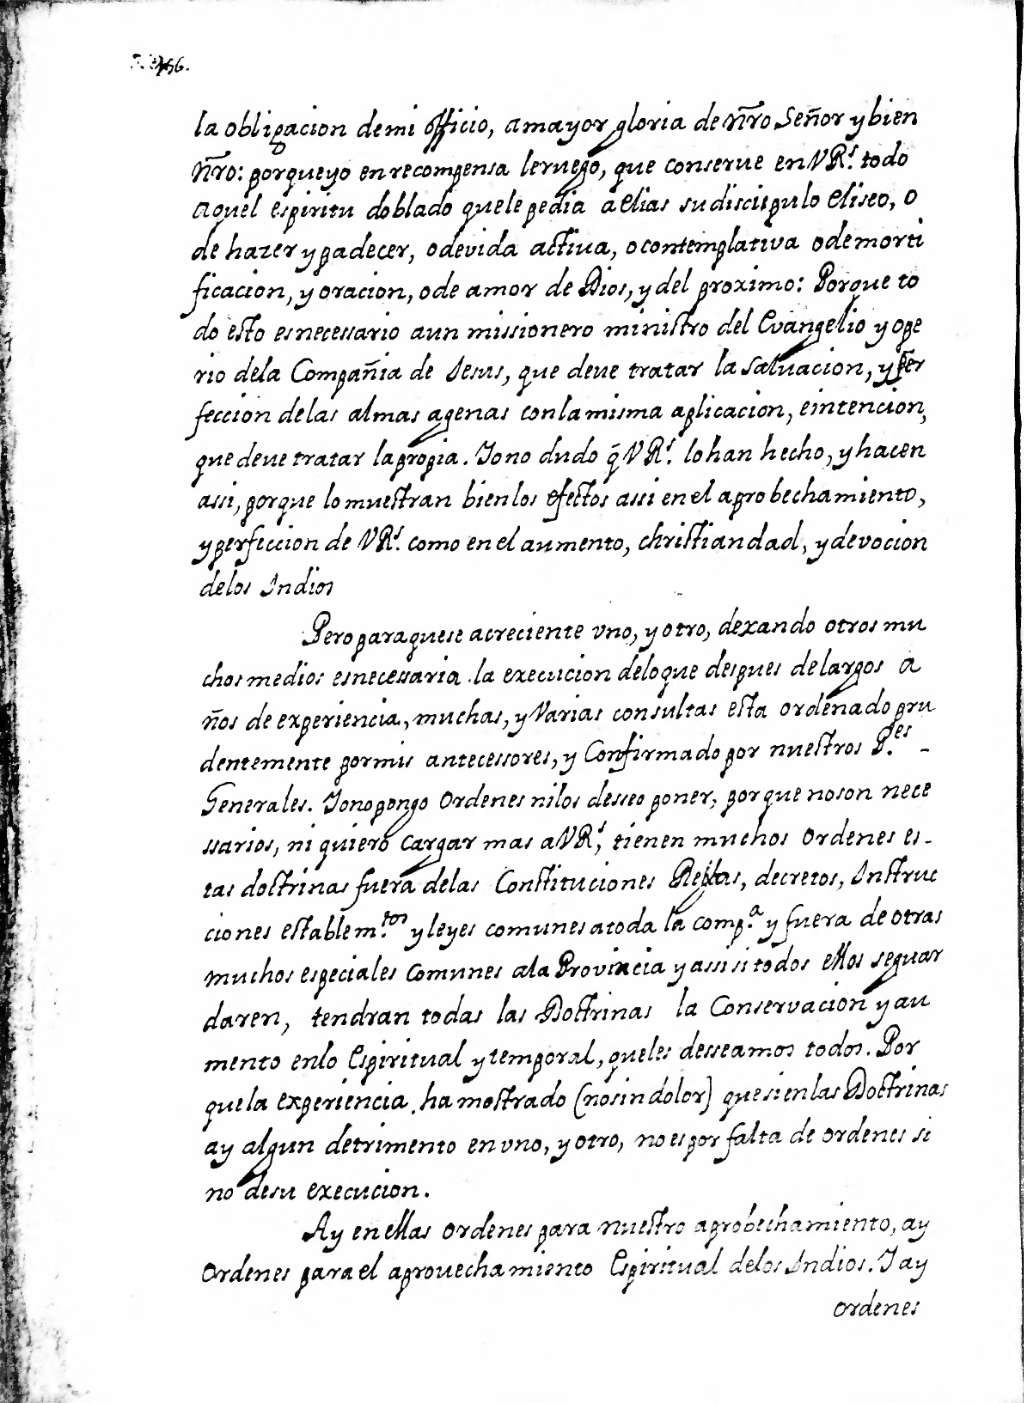 la obligacion de mi officio, a mayor gloria de ñro Señor y bien
ñro: porque yo en recompensa le ruego, que conserue en VRˢ. todo
aquel espiritu doblado que le pedia a Elias su discipulo Eliseo, o
de hazer y padecer, o de vida actiua, o contemplatiua o de morti
ficacion, y oracion, o de amor de Dios, y del proximo: Porque to
do esto es necessario a un missionero ministro del Evangelio y ope
rio de la Compañia de Jesus, que deue tratar la saluacion, y per
feccion de las almas agenas con la misma aplicacion, e intencion,
que deue tratar la propia. Io no dudo q̃ VRˢ. lo han hecho, y hacen
assi, porque lo muestran bien los efectos assi en el aprobechamiento,
y perfeccion de VRˢ. como en el aumento, christiandad, y devocion
de los Indios
Pero para que se acreciente vno, y otro, dexando otros mu
chos medios es necessaria la execucion de lo que despues de largos a
ños de experiencia, muchas, y varias consultas esta ordenado pru
dentemente por mis antecessores, y Confirmado por nuestros P.ᵉˢ -
Generales. Io no pongo Ordenes ni los desseo poner, porque no son nece
ssarios, ni quiero cargar mas a VRˢ, tienen muchos Ordenes es-
tas doctrinas fuera de las Constituciones Reglas, decretos, Instruc
ciones establem.ᵗᵒˢ y leyes comunes a toda la comp.ᵃ y fuera de otras
muchos especiales comunes a la Provincia y assi si todos ellos se guar
daren, tendran todas las Doctrinas la Conservacion y au
mento en lo Espiritual y temporal, que les desseamos todos. Por
que la experiencia ha mostrado (no sin dolor) que si en las Doctrinas
ay algun detrimento en vno, y otro, no es por falta de ordenes si
no de su execucion.
Ay en ellas ordenes para nuestro aprobechamiento, ay
Ordenes para el aprouechamiento Espiritual de los Indios. I ay
Ordenes